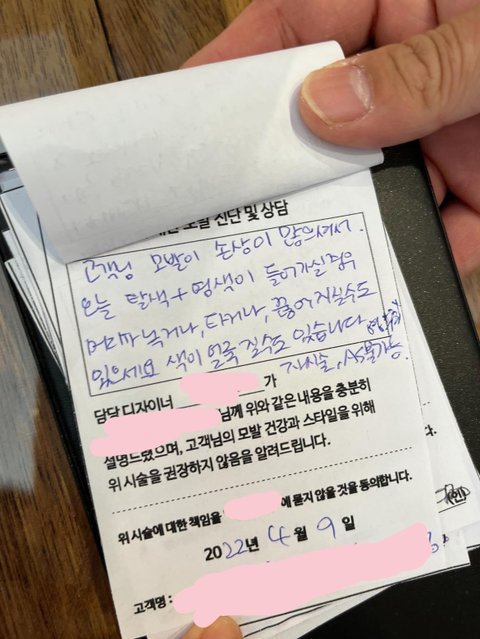 모발 진단 및 상담
고객님 모발이 손상이 많으셔서.
오늘 탈색+염색이 들어가실 경우
머리가 녹거나, 타거나, 끊어지실수도
있으세요 색이 얼룩 질수도 있습니다
재시술, AS불가능.
담당 디자이너 가
님께 위와 같은 내용을 충분히
설명드렸으며, 고객님의 모발 건강과 스타일을 위해
위 시술을 권장하지 않음을 알려드립니다.
위 시술에 대한 책임을 에 묻지 않을 것을 동의합니다.
2022년 4월 9일
고객명 :
다.